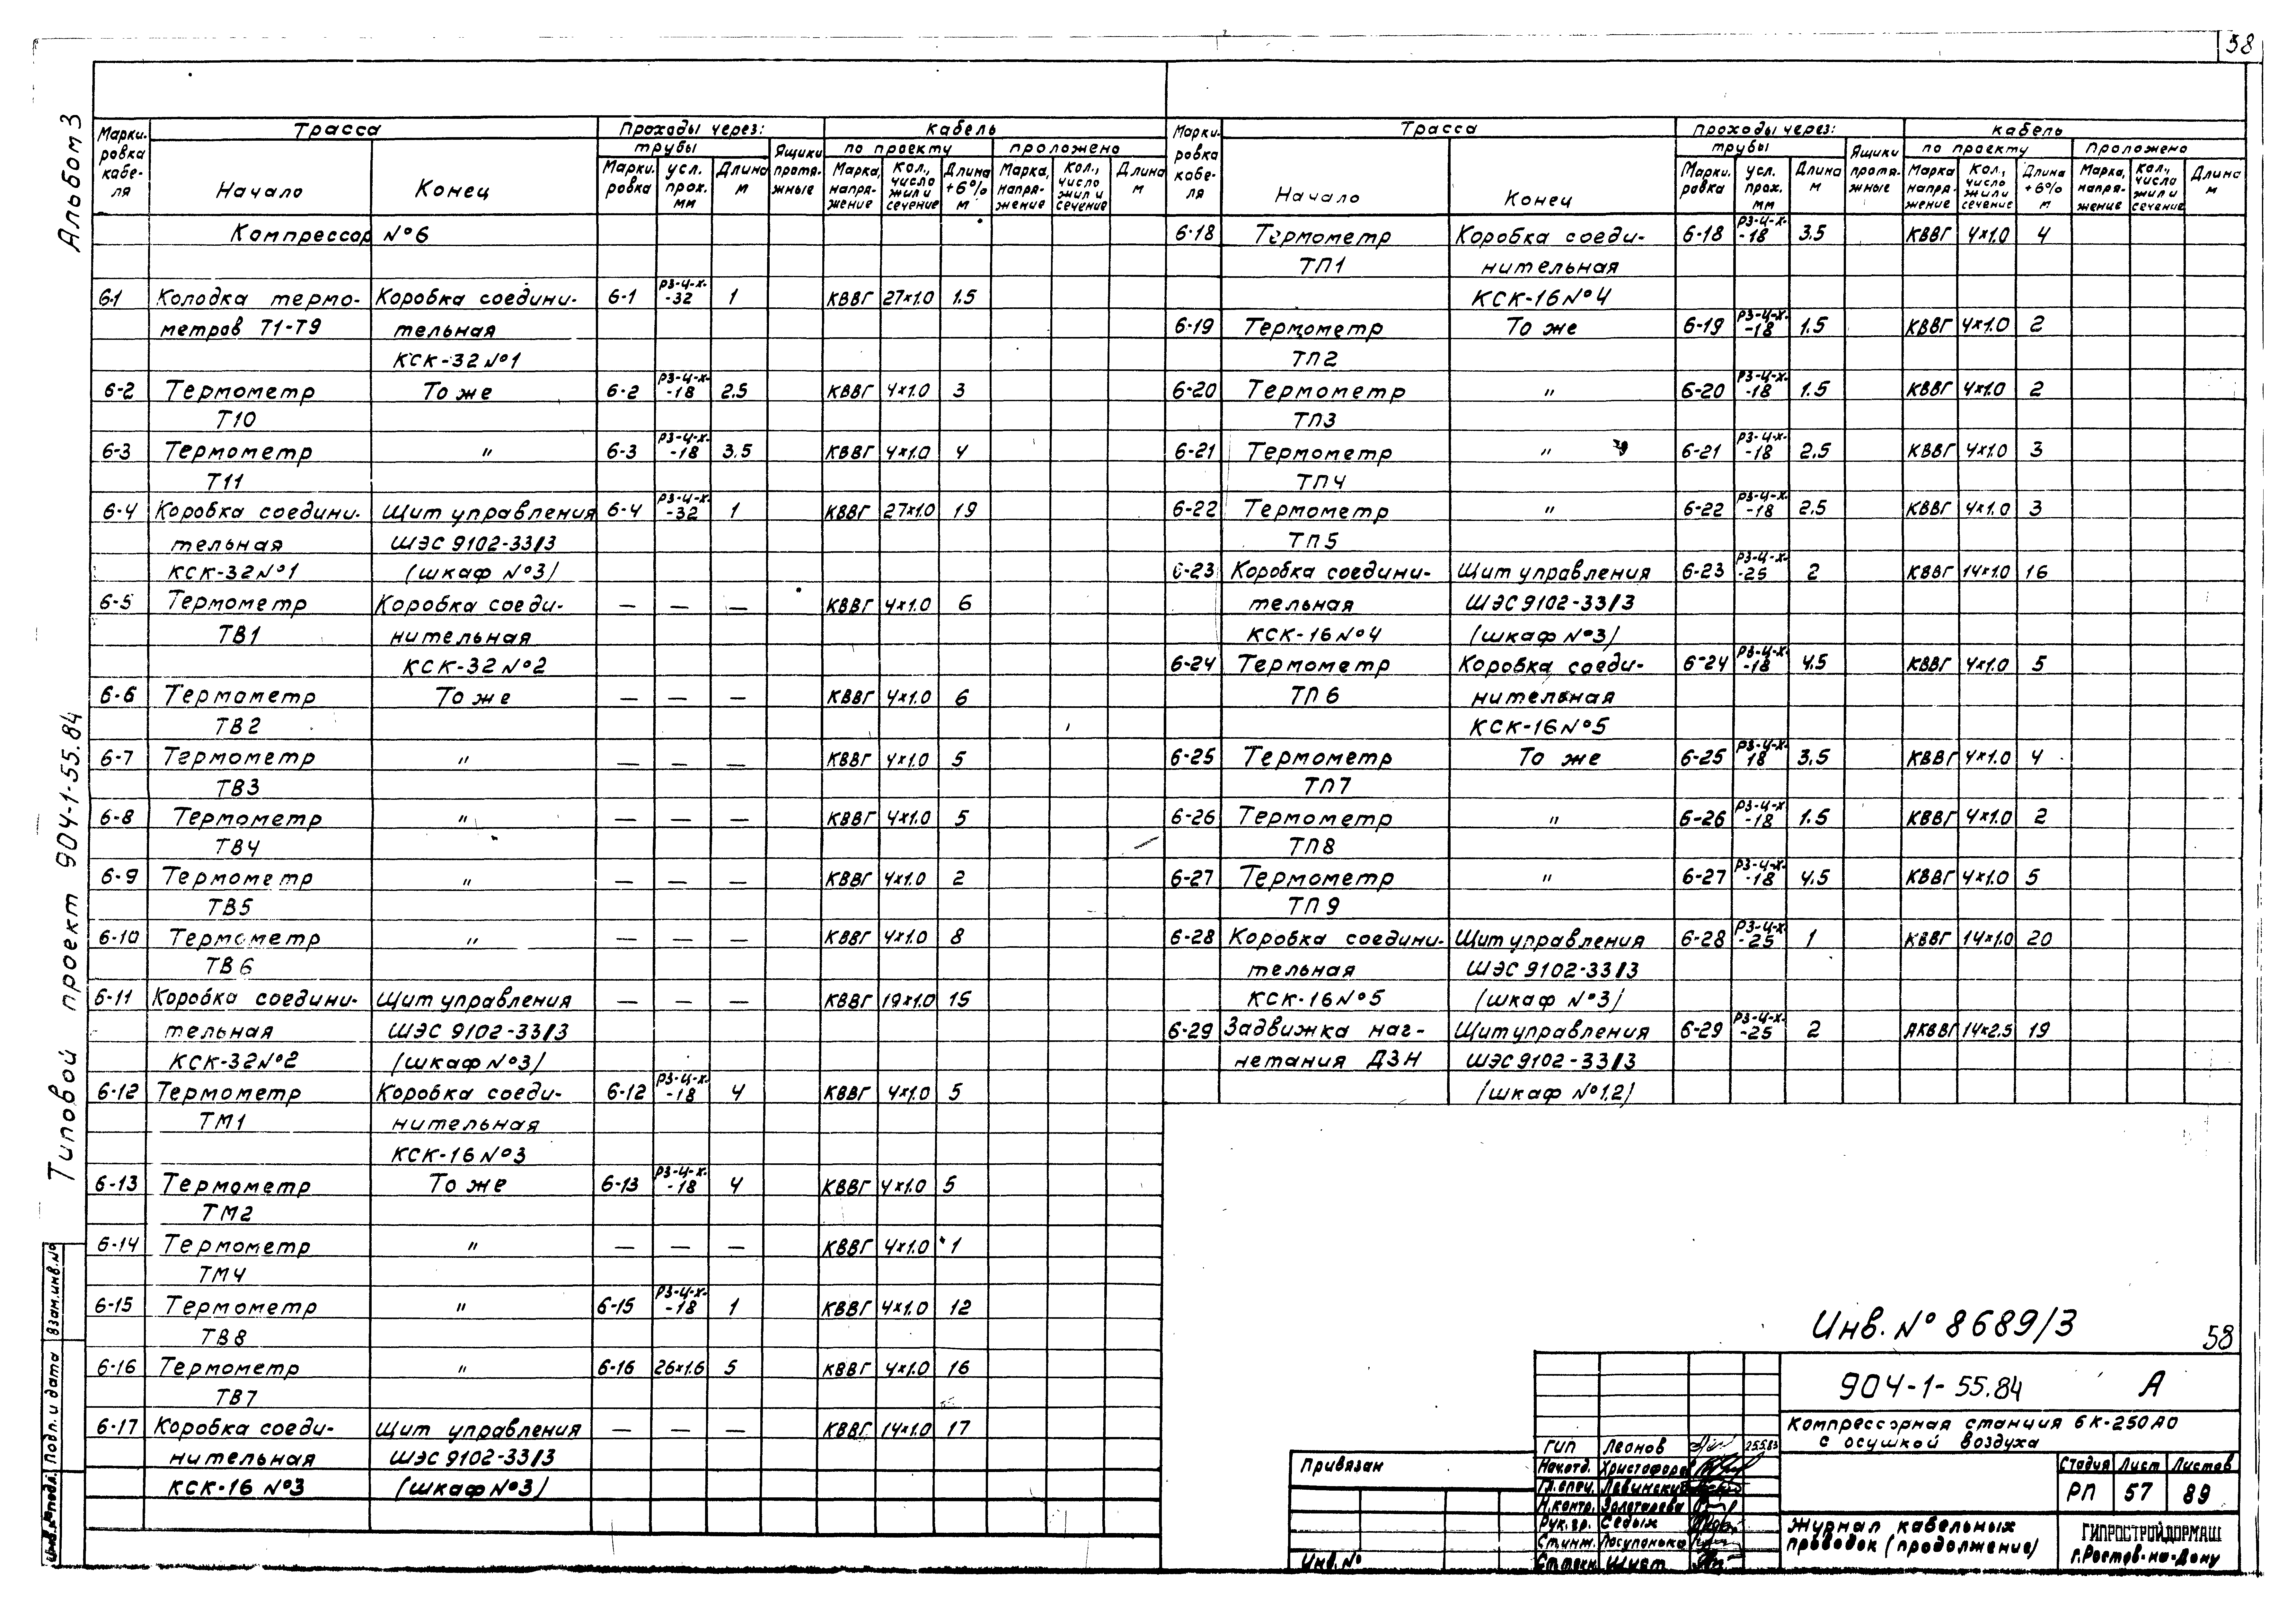 58
Альбом 3
Типовой проект 904-1-55.84
Взам.инв.№
Подп. и дата
Инв.№подл.
Марки-ровка кабе-ля | Трасса | Проходы через: | кабель
трубы | Ящики протя-жные | по проекту | проложено
Начало | Конец | Марки-ровка | усл. прох. мм | Длина м | Марка, напря-жение | Кол., число жил и сечение | Длина +6% м | Марка, напря-жение | Кол., число жил и сечение | Длина м
Компрессор №6
6-1 | Колодка термо- | Коробка соедини- | 6-1 | РЗ-Ц-Х--32 | 1 | КВВГ | 27×1.0 | 1.5
метров Т1-Т9 | тельная
КСК-32№1
6-2 | Термометр | То же | 6-2 | РЗ-Ц-Х--18 | 2.5 | КВВГ | 4×1.0 | 3
Т10
6-3 | Термометр | " | 6-3 | РЗ-Ц-Х--18 | 3.5 | КВВГ | 4×1.0 | 4
Т11
6-4 | Коробка соедини- | Щит управления | 6-4 | РЗ-Ц-Х--32 | 1 | КВВГ | 27×1.0 | 19
тельная | ШЭС 9102-33/3
КСК-32№1 | (шкаф №3)
6-5 | Термометр | Коробка соеди- | — | — | — | КВВГ | 4×1.0 | 6
ТВ1 | нительная
КСК-32№2
6-6 | Термометр | То же | — | — | — | КВВГ | 4×1.0 | 6
ТВ2
6-7 | Термометр | " | — | — | — | КВВГ | 4×1.0 | 5
ТВ3
6-8 | Термометр | " | — | — | — | КВВГ | 4×1.0 | 5
ТВ4
6-9 | Термометр | " | — | — | — | КВВГ | 4×1.0 | 2
ТВ5
6-10 | Термометр | " | — | — | — | КВВГ | 4×1.0 | 8
ТВ6
6-11 | Коробка соедини- | Щит управления | — | — | — | КВВГ | 19×1.0 | 15
тельная | ШЭС 9102-33/3
КСК-32№2 | (шкаф №3)
6-12 | Термометр | Коробка соеди- | 6-12 | РЗ-Ц-Х--18 | 4 | КВВГ | 4×1.0 | 5
ТМ1 | нительная
КСК-16№3
6-13 | Термометр | То же | 6-13 | РЗ-Ц-Х--18 | 4 | КВВГ | 4×1.0 | 5
ТМ2
6-14 | Термометр | " | — | — | — | КВВГ | 4×1.0 | 1
ТМ4
6-15 | Термометр | " | 6-15 | РЗ-Ц-Х--18 | 1 | КВВГ | 4×1.0 | 12
ТВ8
6-16 | Термометр | " | 6-16 | 26×1.6 | 5 | КВВГ | 4×1.0 | 16
ТВ7
6-17 | Коробка соеди- | Щит управления | — | — | — | КВВГ | 14×1.0 | 17
нительная | ШЭС 9102-33/3
КСК-16 №3 | (шкаф №3)
Марки-ровка кабе-ля | Трасса | Проходы через: | кабель
трубы | Ящики протя-жные | по проекту | Проложено
Начало | Конец | Марки-ровка | усл. прох. мм | Длина м | Марка напря-жение | Кол., число жил и сечение | Длина +6% м | Марка, напря-жение | Кол., число жил и сечение | Длина м
6-18 | Термометр | Коробка соеди- | 6-18 | РЗ-Ц-Х--18 | 3.5 | КВВГ | 4×1.0 | 4
ТП1 | нительная
КСК-16№4
6-19 | Термометр | То же | 6-19 | РЗ-Ц-Х--18 | 1.5 | КВВГ | 4×1.0 | 2
ТП2
6-20 | Термометр | " | 6-20 | РЗ-Ц-Х--18 | 1.5 | КВВГ | 4×1.0 | 2
ТП3
6-21 | Термометр | " | 6-21 | РЗ-Ц-Х--18 | 2.5 | КВВГ | 4×1.0 | 3
ТП4
6-22 | Термометр | " | 6-22 | РЗ-Ц-Х--18 | 2.5 | КВВГ | 4×1.0 | 3
ТП5
6-23 | Коробка соедини- | Щит управления | 6-23 | РЗ-Ц-Х--25 | 2 | КВВГ | 14×1.0 | 16
тельная | ШЭС 9102-33/3
КСК-16№4 | (шкаф №3)
6-24 | Термометр | Коробка соеди- | 6-24 | РЗ-Ц-Х--18 | 4.5 | КВВГ | 4×1.0 | 5
ТП6 | нительная
КСК-16№5
6-25 | Термометр | То же | 6-25 | РЗ-Ц-Х-18 | 3.5 | КВВГ | 4×1.0 | 4
ТП7
6-26 | Термометр | " | 6-26 | РЗ-Ц-Х--18 | 1.5 | КВВГ | 4×1.0 | 2
ТП8
6-27 | Термометр | " | 6-27 | РЗ-Ц-Х--18 | 4.5 | КВВГ | 4×1.0 | 5
ТП9
6-28 | Коробка соедини- | Щит управления | 6-28 | РЗ-Ц-Х--25 | 1 | КВВГ | 14×1.0 | 20
тельная | ШЭС 9102-33/3
КСК-16№5 | (шкаф №3)
6-29 | Задвижка наг- | Щит управления | 6-29 | РЗ-Ц-Х--25 | 2 | АКВВГ | 14×2.5 | 19
нетания ДЗН | ШЭС 9102-33/3
(шкаф №1,2)
Инв. № 8689/3
58
904-1-55.84 А
Компрессорная станция 6К-250АО
с осушкой воздуха
Привязан
Инв.№
ГИП Леонов 25.5.83
Нач.отд. Христофоров
Гл.спец. Левинский
Н.контр. Золотарева
Рук.гр. Седых
Ст.инж. Посупонько
Ст.техн. Шуст
Стадия | Лист | Листов
РП | 57 | 89
Журнал кабельных
проводок (продолжение)
ГИПРОСТРОЙДОРМАШ
г.Ростов-на-Дону